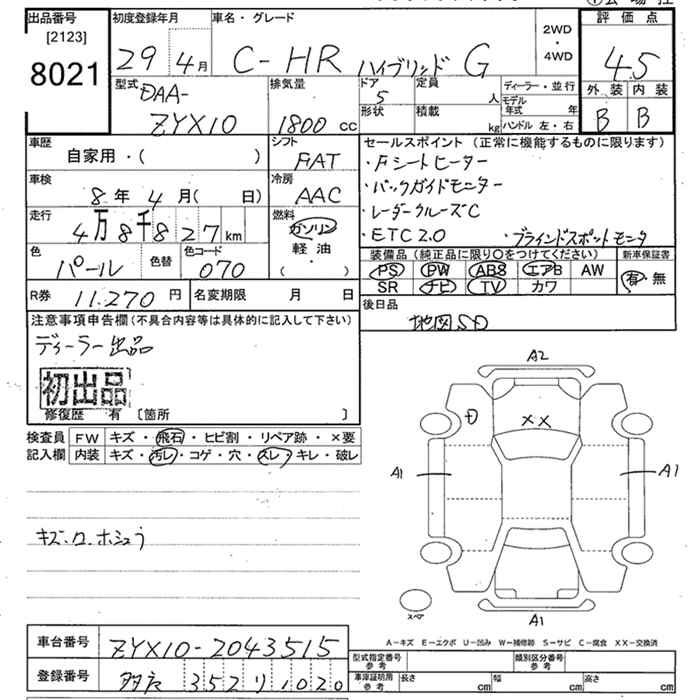 出品番号
[2123]
8021
初度登録年月
29 4月
車名・グレード
C-HR ハイブリッド G
2WD
・
4WD
評価点
4.5
外装 内装
B B
型式
DAA-
ZYX10
排気量
1800 cc
ドア
5
形状
定員
人
積載
kg
ディーラー・並行
モデル年式 年
ハンドル 左・右
車歴
自家用・( )
シフト
FAT
車検
8年 4月( 日)
冷房
AAC
走行
4万8千827km
燃料
ガソリン
軽油
( )
色
パール
色替
色コード
070
R券 11.270円
名変期限 月 日
セールスポイント(正常に機能するものに限ります)
・Fシートヒーター
・バックガイドモニター
・レーダークルーズC
・ETC2.0 ・ブラインドスポットモニタ
装備品(純正品に限り○をつけてください)
PS PW ABS エアB AW
SR ナビ TV カワ
新車保証書
有・無
後日品
地図SD
注意事項申告欄(不具合内容等は具体的に記入して下さい)
ディーラー出品
初出品
修復歴 有 [箇所 ]
検査員
記入欄
FW キズ・飛石・ヒビ割・リペア跡・×要
内装 キズ・汚レ・コゲ・穴・スレ・キレ・破レ
キズ・ワ・ホシュウ
A2
D
XX
A1
A1
A1
スペア
A-キズ E-エクボ U-凹み W-補修跡 S-サビ C-腐食 XX-交換済
車台番号 ZYX10-2043515
登録番号 352 り 1020
型式指定番号
参考
類別区分番号
参考
車庫証明用
参考
長さ cm 幅 cm 高さ cm